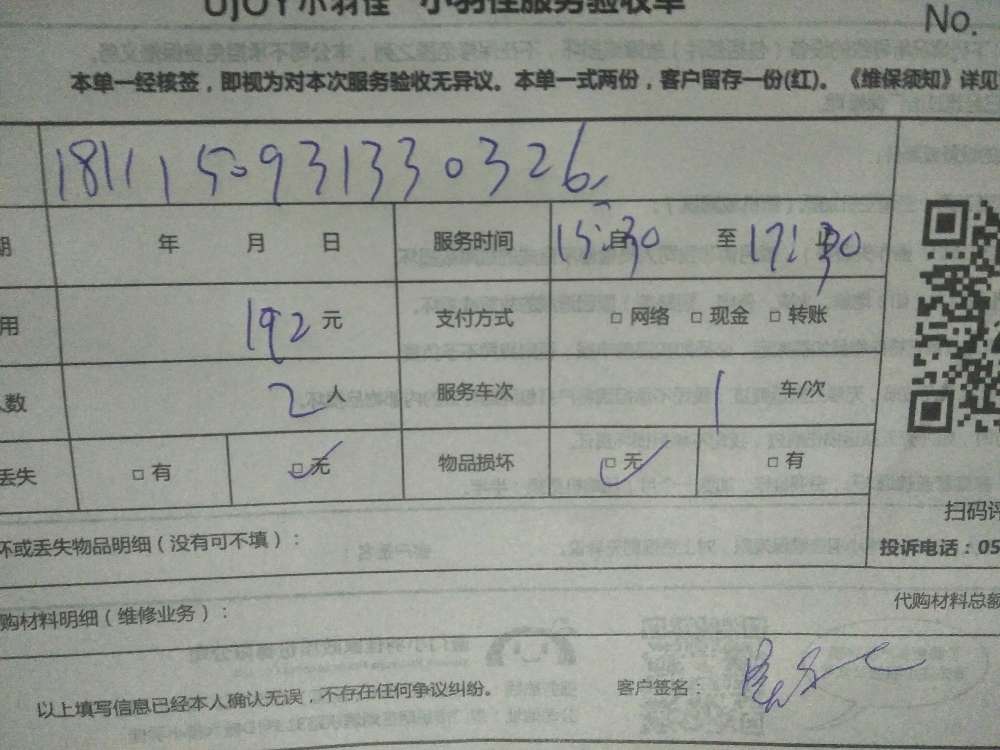 UJOY小羽佳 小羽佳服务验收单
No.
本单一经核签，即视为对本次服务验收无异议。本单一式两份，客户留存一份(红)。《维保须知》详见
1811150931330326
期 年 月 日 服务时间 15:30 自 至 17:30 止
用 192 元 支付方式 □ 网络 □ 现金 □ 转账
人数 2 人 服务车次 1 车/次
丢失 □ 有 □ 无 物品损坏 □ 无 □ 有
扫码评
坏或丢失物品明细（没有可不填）：
投诉电话：05
购材料明细（维修业务）：
代购材料总额
以上填写信息已经本人确认无误，不存在任何争议纠纷。
客户签名：